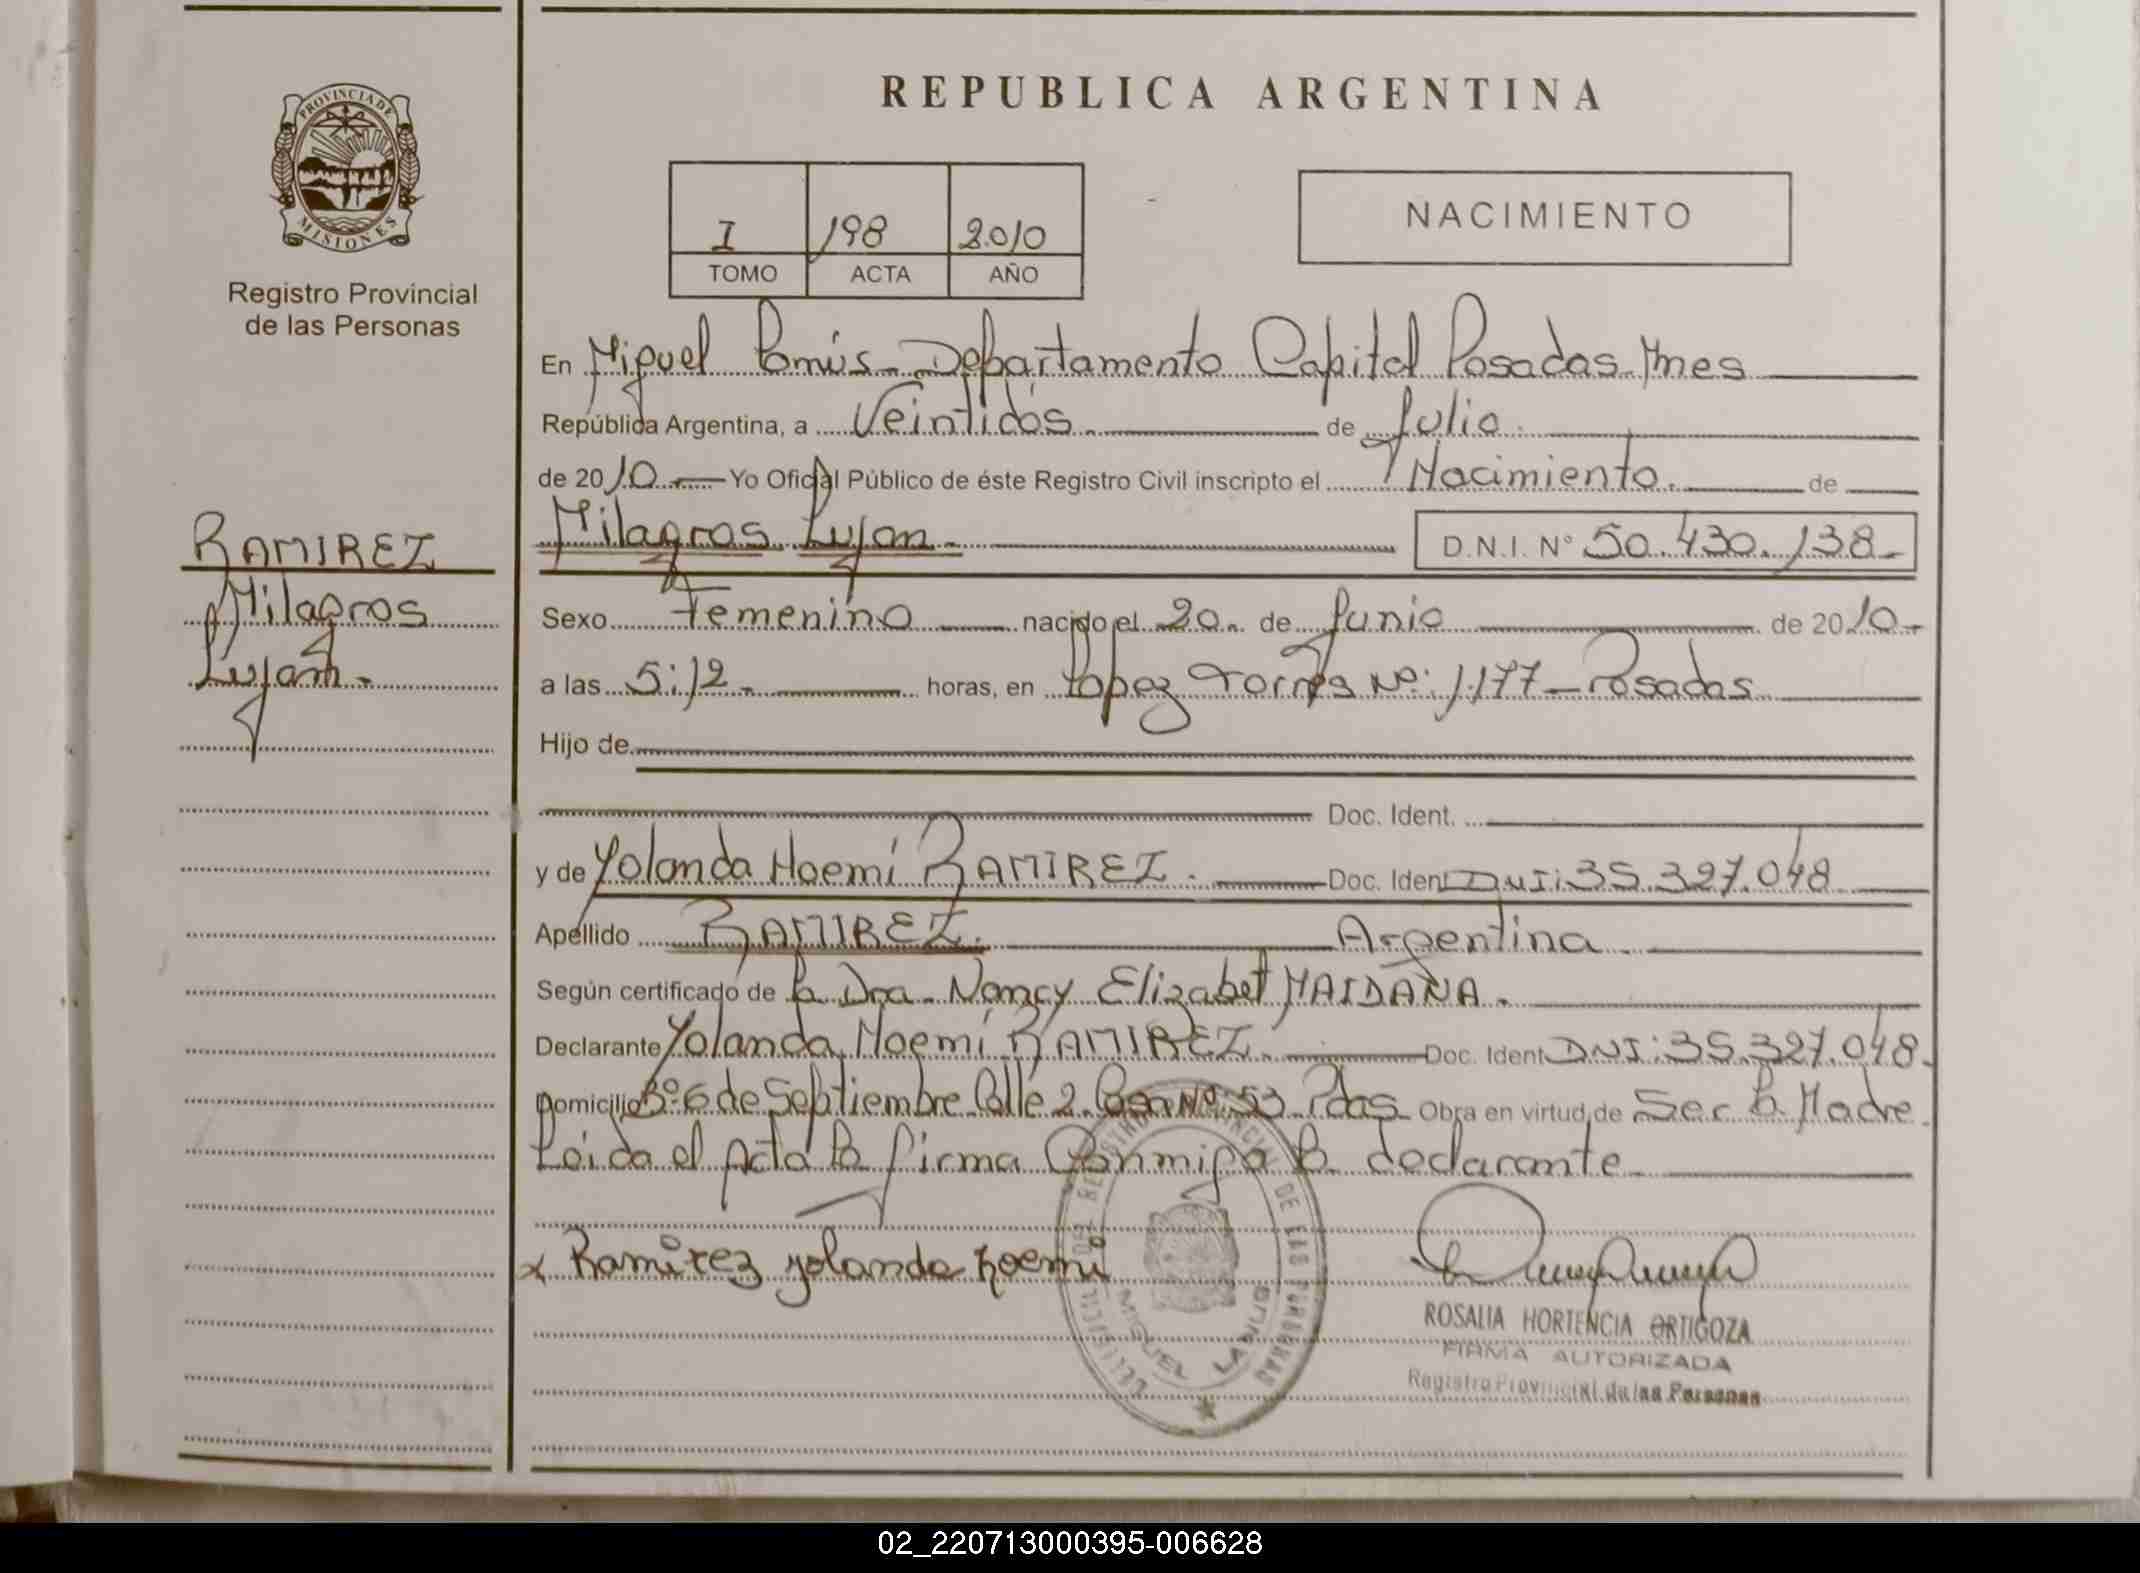 REPUBLICA ARGENTINA
PROVINCIA DE
MISIONES
Registro Provincial
de las Personas
I 198 2010
TOMO ACTA AÑO
NACIMIENTO
RAMIREZ
Milagros
Lujan.-
En Miguel Lanús - Departamento Capital Posadas Mnes
República Argentina, a Veintidós de Julio
de 2010 Yo Oficial Público de éste Registro Civil inscripto el Nacimiento. de
Milagros Lujan.- D.N.I. N° 50.430.138-
Sexo Femenino nacido el 20. de Junio de 2010-
a las 5:12.- horas, en López Torres Nº: 1.177 - Posadas
Hijo de
Doc. Ident.
y de Yolanda Noemí RAMIREZ. Doc. Ident DNI: 35.327.048
Apellido RAMIREZ. Argentina
Según certificado de la Dra. Nancy Elizabet MAIDANA.
Declarante Yolanda Noemí RAMIREZ. Doc. Ident DNI: 35.327.048.
Domicilio Bº 6 de Septiembre Calle 2 Casa Nº 53 Pdas Obra en virtud de Ser la Madre.
Leida el Acta la firma Conmigo la declarante
x Ramirez yolanda noemi
MIGUEL LANUS
ROSALIA HORTENCIA ORTIGOZA
FIRMA AUTORIZADA
Registro Provincial de las Personas
02_220713000395-006628